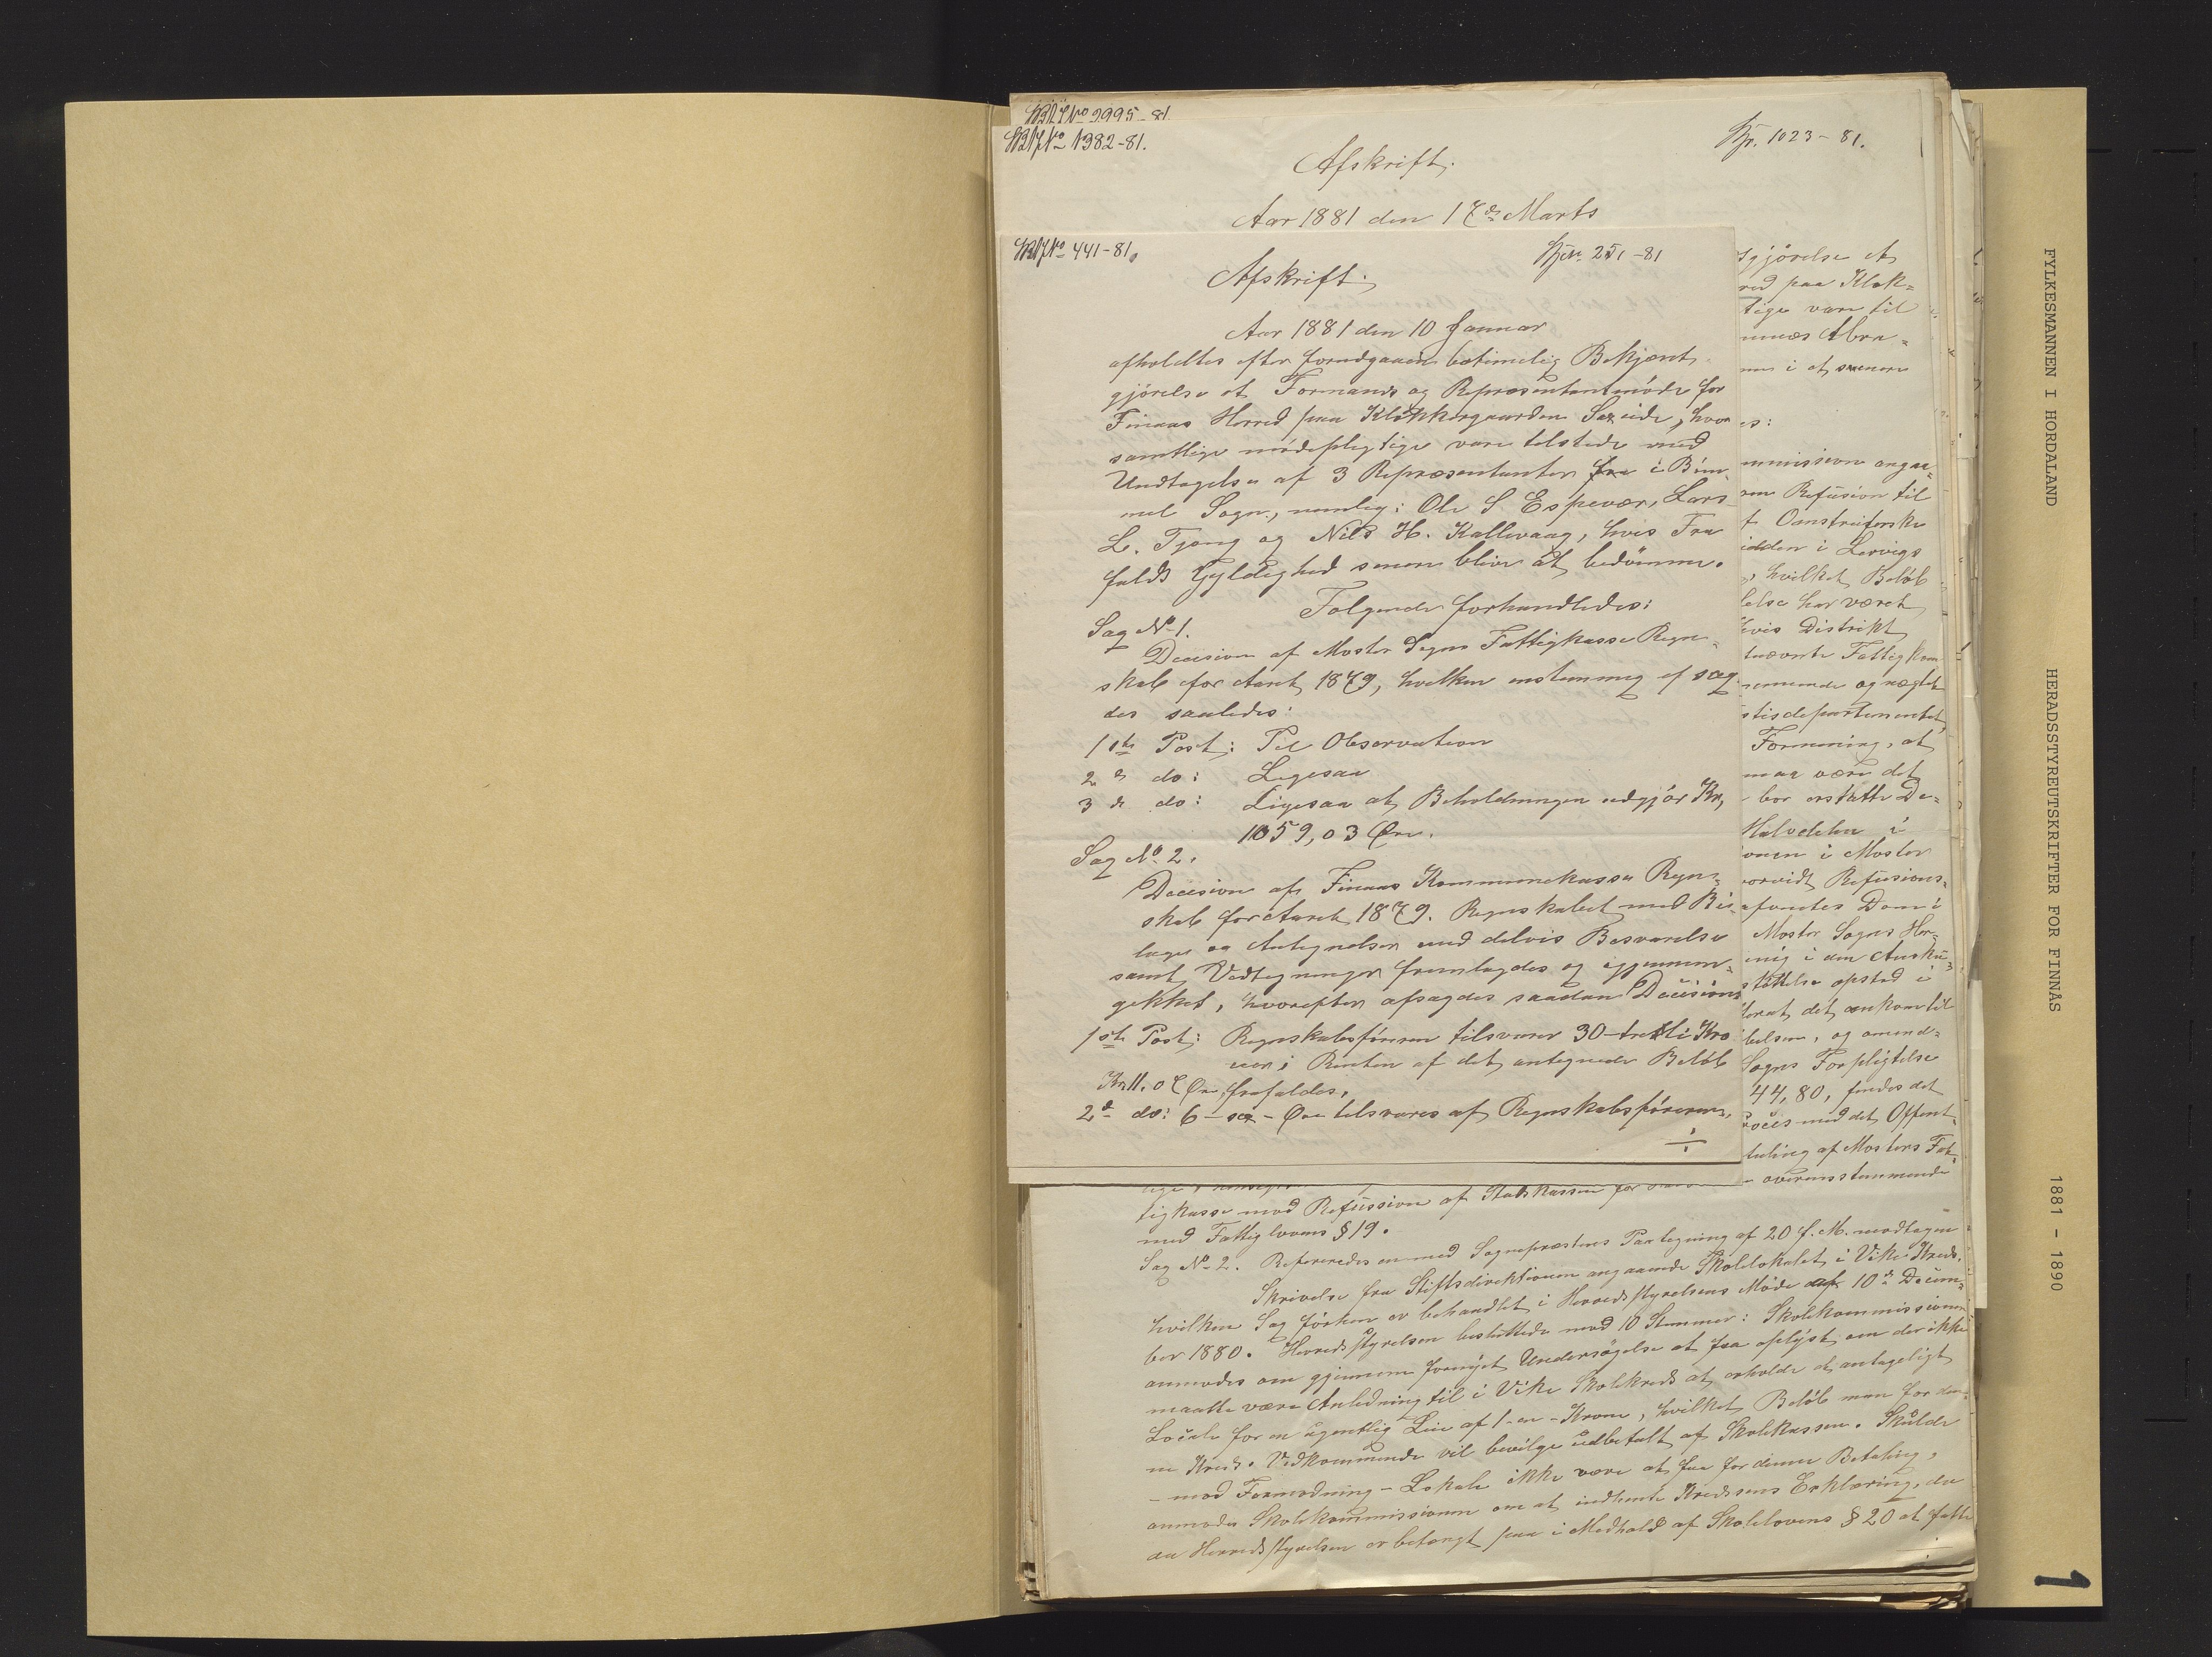 SBAJNo 2995-81.
SBAJNo 1382-81.
Kpr. 1023-81.
Afskrift.
Aar 1881 den 17de Marts
SBAJNo 441-81.
Afskrift.
Aar 1881 den 10 Januar
afholdtes efter forudgaaende betimelig Bekjent-
gjørelse et Formands og Repræsentantmøde for
Finaas Herred paa Klokkergaarden Sæx eide, hvor
samtlige mødepligtige vare tilstede med
Undtagelse af 3 Repræsentanter fra i Bøm-
mel Sogn, nemlig: Ole S. Espevær, Lars
L. Tjong og Nils H. Kallevaag, hvis Fra
falds Gyldighed senere bliver at bedømme.
Følgende forhandledes:
Sag No 1.
Decision af Moster Sogns Fattigkasse Regn-
skab for Aaret 1879, hvilken enstemmig afsag-
des saaledes:
1ste Post: Til Observation
2d do: Ligesaa
3de do: Ligesaa at Beholdningen udgjør Kr.
1059,03 Øre.
Sag No 2.
Decision af Finaas Kommunekasse Regn-
skab for Aaret 1879. Regnskabet med Bi-
lage og Antegnelser med delvis Besvarelse
samt Vedtegninger fremlagdes og igjennem-
gikkes, hvorefter afsagdes saadan Decision
1ste Post: Regnskabsføreren tilsvarer 30-tretti Kro
ner i Renten af det antegnede Beløb
Kr. 11.07 Øre frafaldes.
2d do: 6-sex-Øre tilsvares af Regnskabsføreren.
gjørelse et
red paa Klok-
tige vare til
næs Abra-
nes i et senere
es:
mmission angaa-
om Refusion til
t Omstreiferske
idden i Lervigs
, hvilket Beløb
else har været
hvis Distrikt
nævnte Fattigkom
nemmende og nægtet
stisdepartementet
Formening, at
maa være det
bør erstatte De-
Halvdelen i
onen i Moster
orvidt Refusions-
afventes Dom i
Moster Sogns Her-
enig i den Ansku-
støttelse opstod i
forat det ankom til
belsen, og omend-
Sogns Forpligtelse
44,80, findes det
roces med det Offent-
taling af Mosters Fat-
overensstemmende
tigkasse mod Refusion af Statskassen for
med Fattiglovens § 19.
Sag No 2. Refereredes en med Sognepræstens Paategning af 20 f. M. modtagen
Skrivelse fra Stiftsdirektionen angaaende Skolelokalet i Vike Kreds,
hvilken Sag førhen er behandlet i Herredsstyrelsens Møde af 10de Decem-
ber 1880. Herredsstyrelsen besluttede med 10 Stemmer: Skolekommissionen
anmodes om gjennem fornyet Undersøgelse at faa oplyst om der ikke
maatte være Anledning til i Vike Skolekreds at erholde et antageligt
Locale for en ugentlig Leie af 1-en-Krone, hvilket Beløb man for den-
ne Kreds Vedkommende vil bevilge udbetalt af Skolekassen. Skulde
- mod Formodning - Lokale ikke være at faa for denne Betaling,
anmodes Skolekommissionen om at indhente Kredsens Erklæring, da
da Herredsstyrelsen er betænkt paa i Medhold af Skolelovens § 20 at fatte
FYLKESMANNEN I HORDALAND
HERADSSTYREUTSKRIFTER FOR FINÅS
1881 - 1890
1